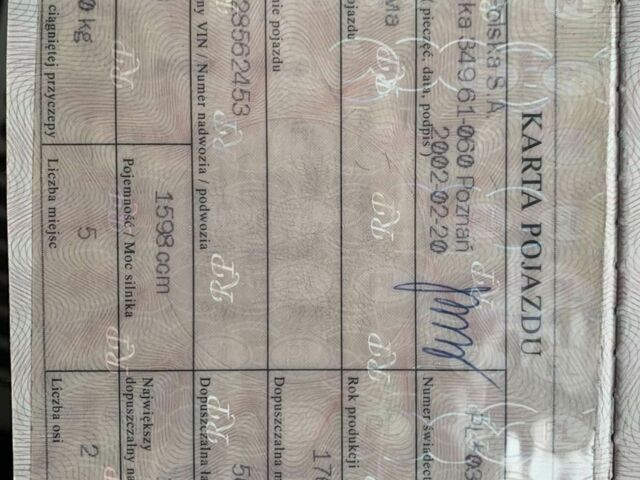 KARTA POJAZDU
olska S.A.
ka 349 61-060 Poznań
2002-02-20
( pieczęć, data, podpis )
Numer świadect
ojazdu
Rok produkcji
nie pojazdu
Dopuszczalna m
17
ny VIN / Numer nadwozia / podwozia
28562453
Dopuszczalna ła
5
Pojemność / Moc silnika
1598 ccm
Największy
dopuszczalny na
ciągniętej przyczepy
0 kg
Liczba miejsc
5
Liczba osi
2